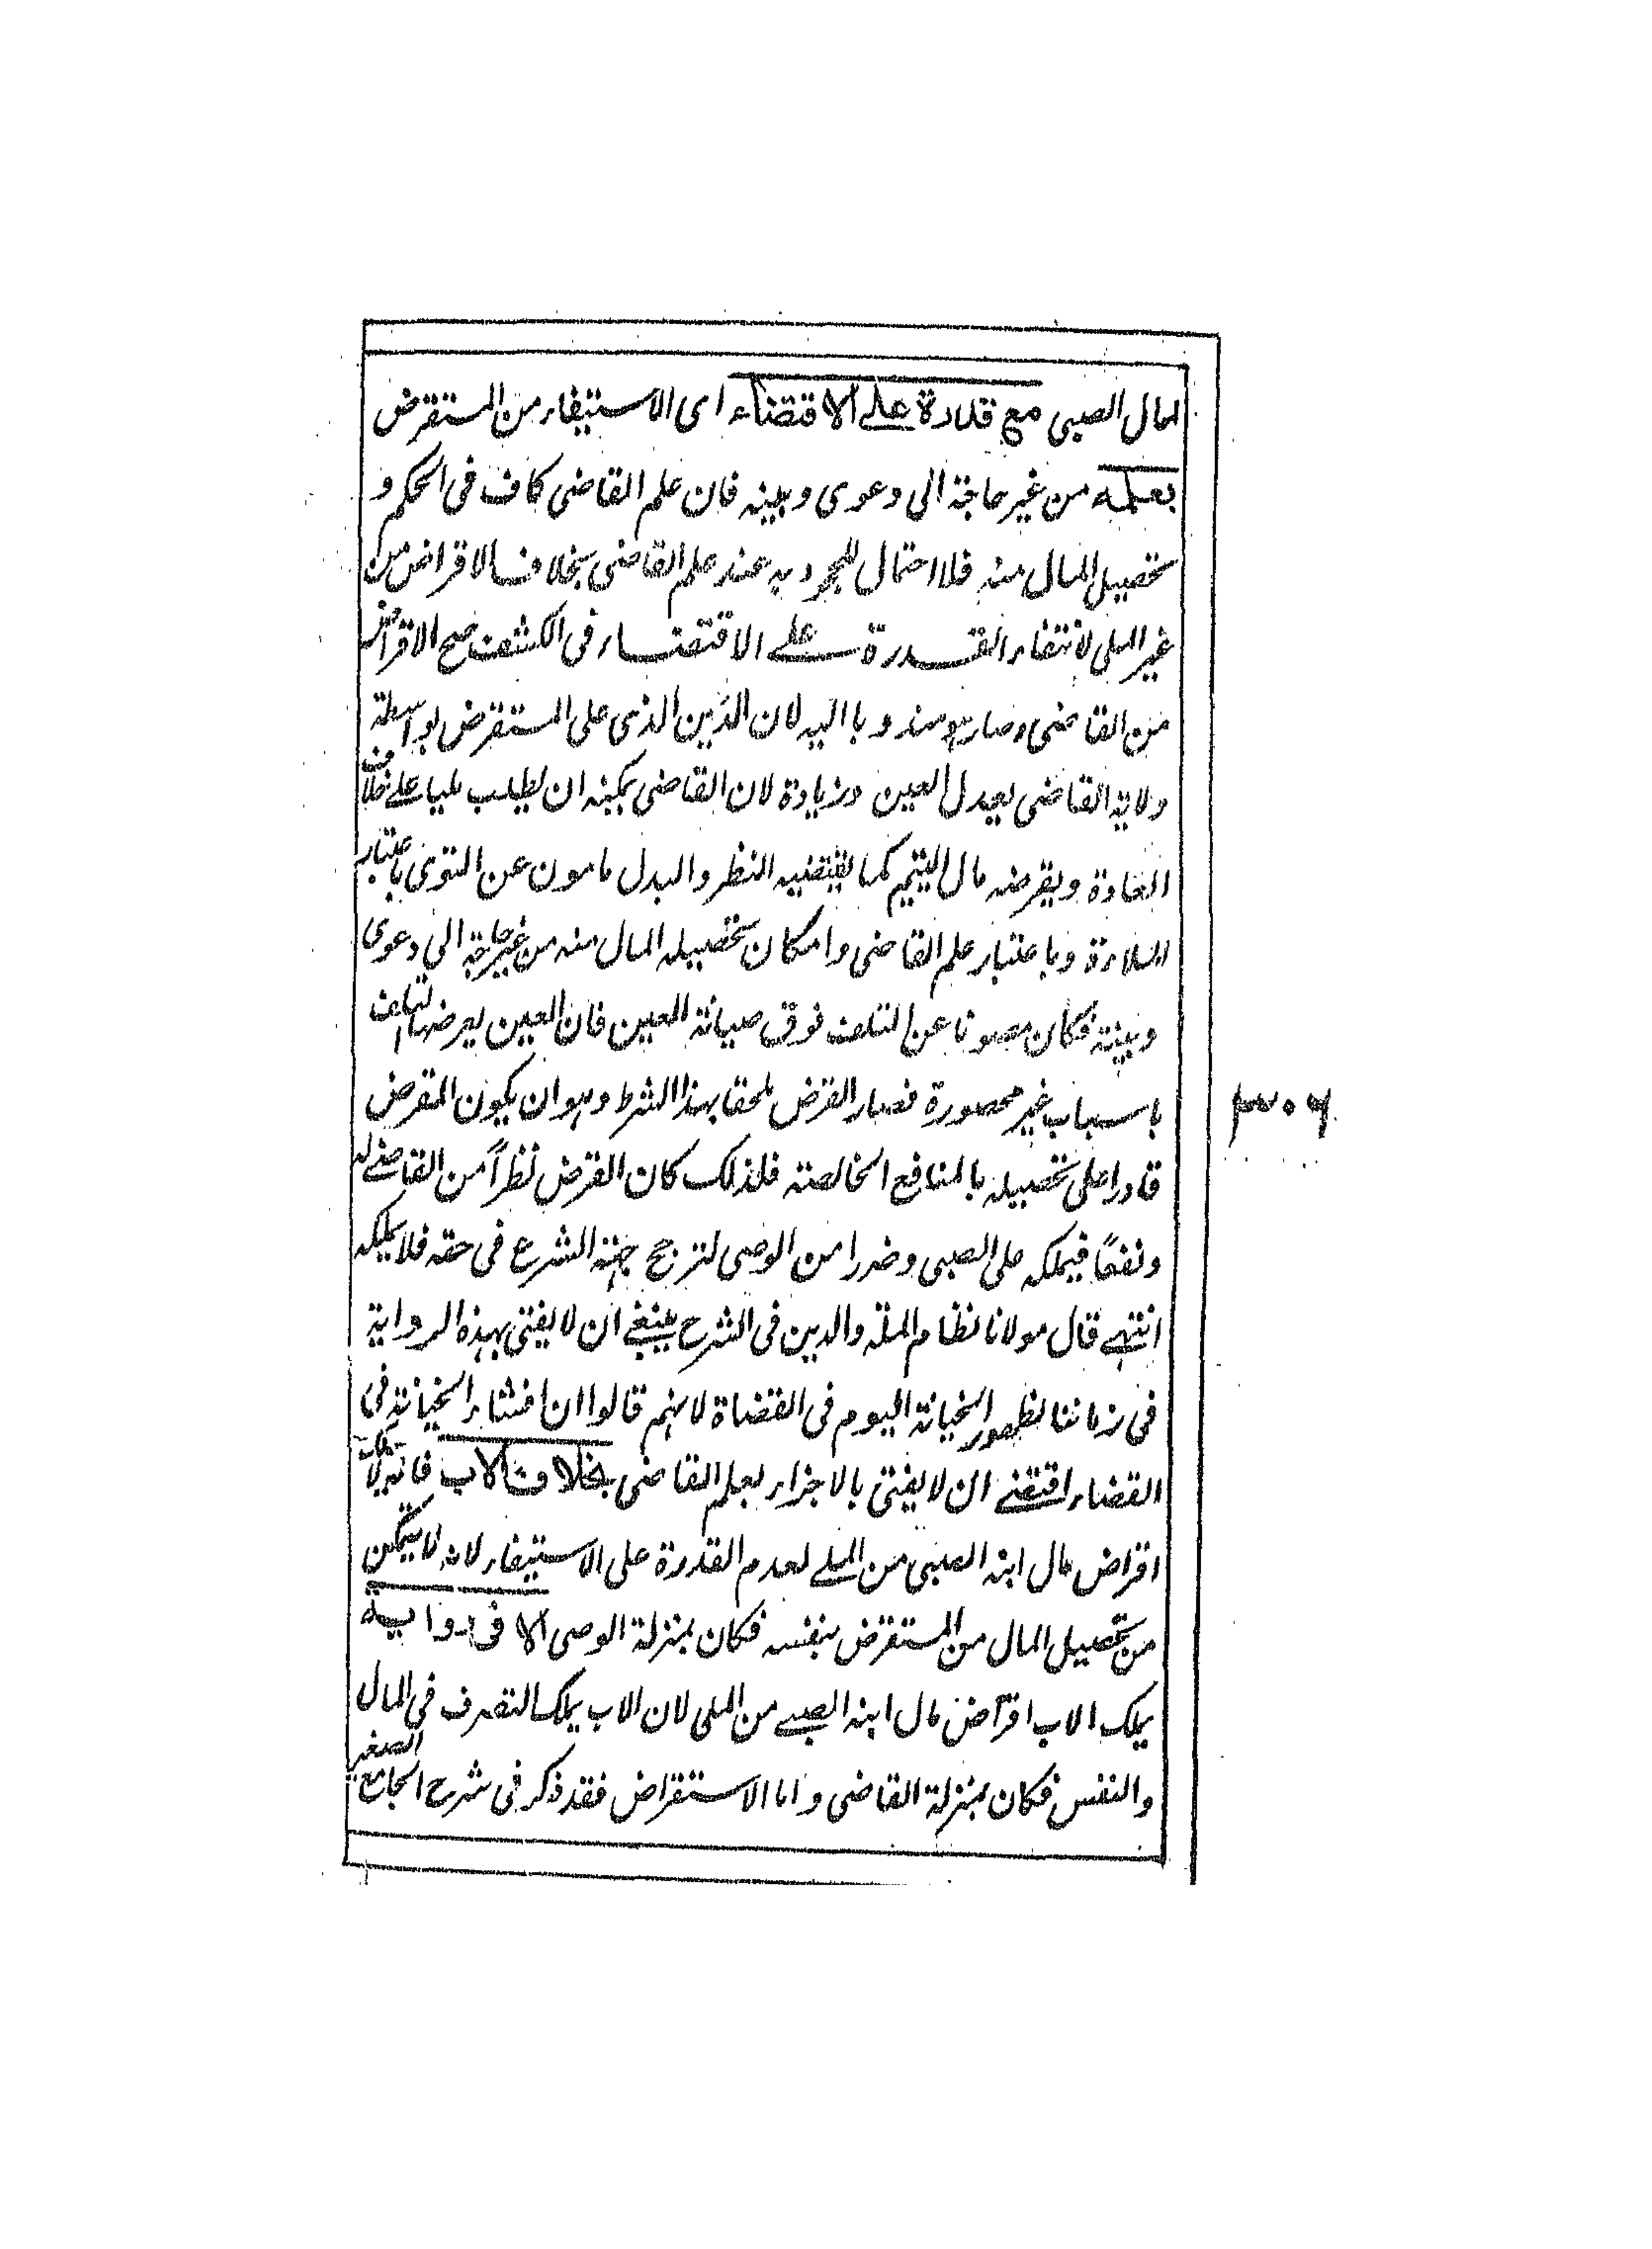 لمال الصبى مع قدرة على الاقتضاء اى الاستيفاء من المستقرض
بعلمه من غير حاجة الى دعوى وبينه فان علم القاضى كاف فى الحكم و
تحصيل المال منه فلا احتمال للجحود به عند علم القاضى بخلاف الاقراض من
غير الملى لانتفاء القدرة على الاقتضاء فى الكشف صح الاقراض
من القاضى وصار مندوبا اليه لان الدين الذى على المستقرض بواسطة
ولاية القاضى يعدل العين وزيادة لان القاضى يمكنه ان يطلب مليا على خلاف
العادة ويقرضه مال اليتيم كما يقتضيه النظر والبدل مامون عن التوى باعتبار
الملاءة وباعتبار علم القاضى وامكان تحصيله المال منه من غير حاجة الى دعوى
وبينة فكان مصونا عن التلف فوق صيانة العين فان العين يعرضها التلف
باسباب غير محصورة فصار القرض ملحقا بهذا الشرط وهو ان يكون المقرض
قادرا على تحصيله بالمنافع الخالصة فلذلك كان القرض نظراً من القاضى له
ونفعًا فيملكه على الصبى وضررا من الوصى لترجح جهة الشرع فى حقه فلا يملكه
انتهى قال مولانا نظام الملة والدين فى الشرح ينبغى ان لا يفتى بهذه الرواية
فى زماننا لظهور الخيانة اليوم فى القضاة لانهم قالوا ان افشاء الخيانة فى
القضاء اقتضى ان لا يفتى بالاجزاء بعلم القاضى بخلاف الاب فانه لا يملك
اقراض مال ابنه الصبى من الملى لعدم القدرة على الاستيفاء لانه لا يتمكن
من تحصيل المال من المستقرض بنفسه فكان بمنزلة الوصى الا فى رواية
يملك الاب اقراض مال ابنه الصبى من الملى لان الاب يملك التصرف فى المال
والنفس فكان بمنزلة القاضى واما الاستقراض فقد ذكر فى شرح الجامع الصغير